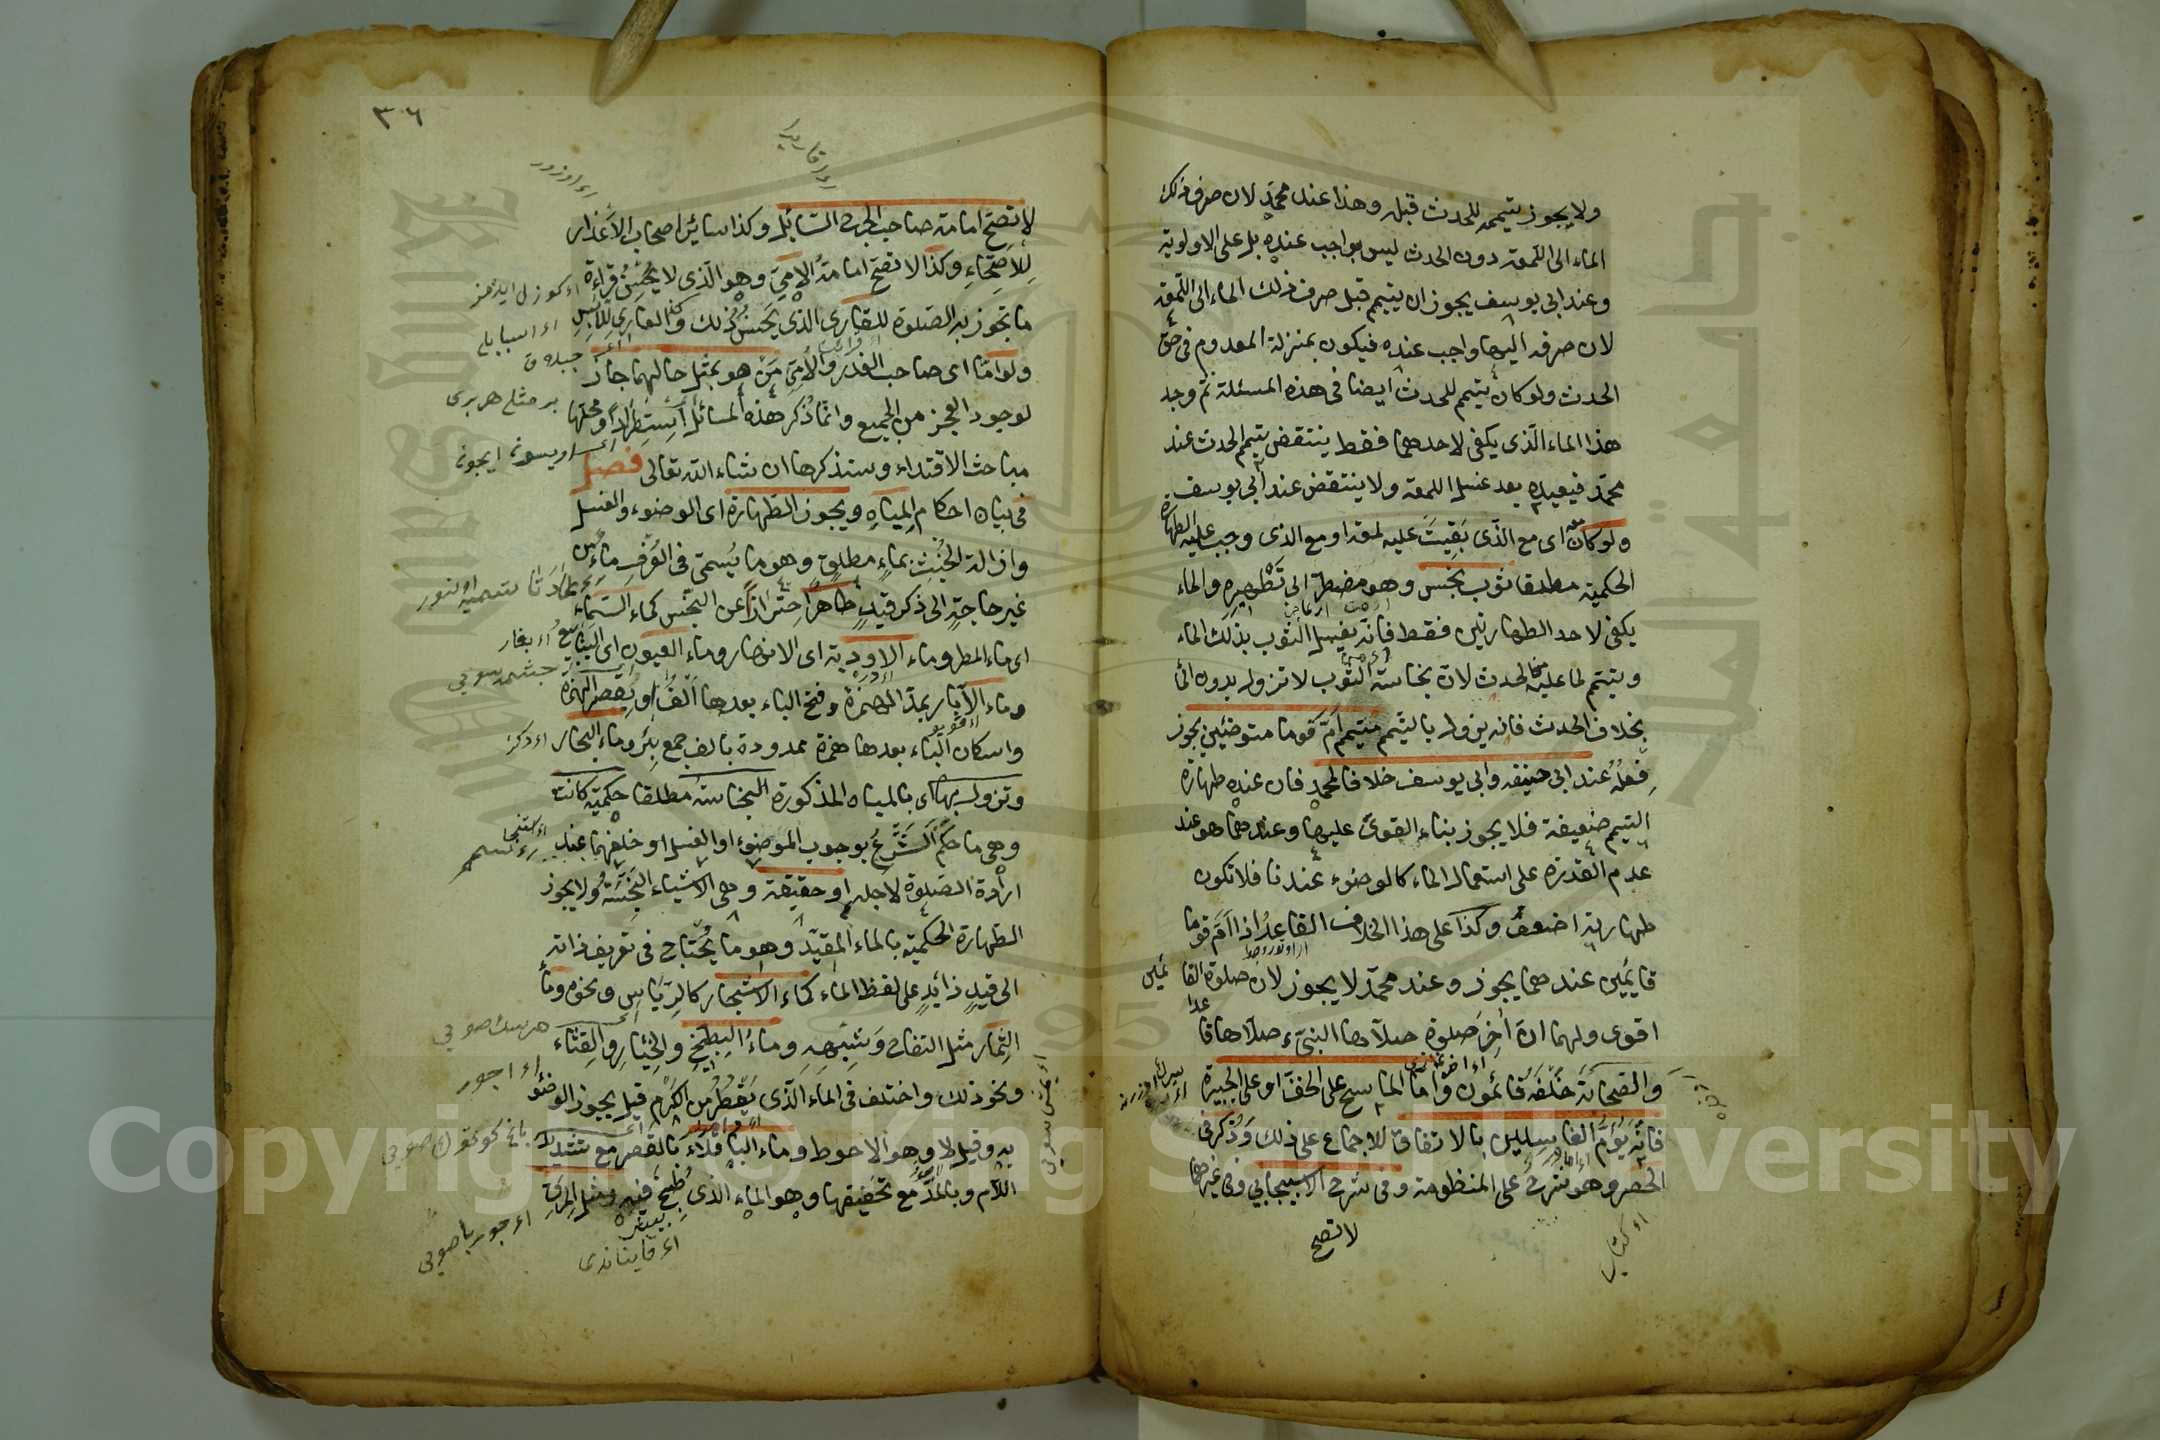 ولا يجوز تيممه للحدث قبله وهذا عند محمد لان صرف ذلك
الماء الى اللمعة دون الحدث ليس بواجب عنده بل على الاولوية
وعند ابى يوسف يجوز ان يتيمم قبل صرف ذلك الماء الى اللمعة
لان صرفه اليها واجب عنده فيكون بمنزلة المعدوم فى حق
الحدث ولو كان تيمم للحدث ايضا فى هذه المسئلة ثم وجد
هذا الماء الذى يكفى لاحدهما فقط ينتقض تيمم الحدث عند
محمد فيعيده بعد غسل اللمعة ولا ينتقض عند ابى يوسف
ولو كان معه اى مع الذى بقيت عليه لمعة او مع الذى وجب عليه الطهارة
الحكمية مطلقا ثوب نجس وهو مضطر الى تطهيره والماء
يكفى لاحد الطهارتين فقط فانه يغسل الثوب بذلك الماء
ويتيمم لما عليه من الحدث لان نجاسة الثوب لا تزول بدون الماء
بخلاف الحدث فانه يزول بالتيمم متيمم ام قوما متوضئين يجوز
فعله عند ابى حنيفه وابى يوسف خلافا لمحمد فان عنده طهارة
التيمم ضعيفة فلا يجوز بناء القوى عليها وعندهما هو عند
عدم القدرة على استعمال الماء كالوضوء عندنا فلا تكون
طهارته اضعف وكذا على هذا الخلاف القاعد اذا ام قوما
قايمين عندهما يجوز وعند محمد لا يجوز لان صلوة القائمين
اقوى ولهما ان اخر صلوة صلاها النبى ء صلاها قاعدا
والصحابة خلفه قائمون واما الماسح على الخف او على الجبيرة
فانه يؤم الغاسلين بالاتفاق للاجماع على ذلك وذكر فى
الحصر وهو شرح على المنظومة وفى شرح الاسبيجابى وفى غيرهما
لا تصح
٣٦
لا تصح امامة صاحب الجرح السائل وكذا سائر اصحاب الاعذار
للاصحاء وكذا لا تصح امامة الامى وهو الذى لا يحسن قراءة
ما تجوز به الصلوة للقارى الذى يحسن ذلك وكذا العارى للابس
ولو اما اى صاحب العذر والامى من هو بمثل حالهما جاز
لوجود العجز من الجميع وانما ذكر هذه المسائل استطرادا ومحلها
مباحث الاقتداء وستذكرها ان شاء الله تعالى فصل
فى بيان احكام المياه ويجوز الطهارة اى الوضوء والغسل
وازالة الخبث بماء مطلق وهو ما يسمى فى العرف ماء من
غير حاجة الى ذكر قيد طاهر احترازا عن النجس كماء السماء
اى ماء المطر وماء الاودية اى الانهار وماء العيون اى الينابيع
وماء الآبار بمد الهمزة وفتح الباء بعدها الف او بقصر الهمزة
واسكان الباء بعدها همزة ممدودة بالف جمع بئر وماء البحار
وتزول بها اى بالمياه المذكورة النجاسة مطلقا حكمية كانت
وهى ما حكم الشرع بوجوب الوضوء او الغسل او خلفهما عند
ارادة الصلوة لاجله او حقيقة وهى الاشياء النجسة ولا يجوز
الطهارة الحكمية بالماء المقيد وهو ما يحتاج فى تعريف ذاته
الى قيد زائد على لفظ الماء كماء الاشجار كالريباس ونحوه وماء
الثمار مثل التفاح وشبهه وماء البطيخ والخيار والقثاء
ونحو ذلك واختلف فى الماء الذى يقطر من الكرم قيل يجوز الوضوء
به وقيل لا وهو الاحوط وماء الباقلاء بالقصر مع تشديد
اللام وبالمد مع تخفيفها وهو الماء الذى طبخ فيه ومثل المرق
Copyright © King Saud University
1957